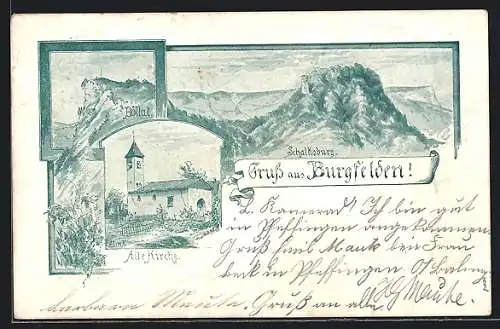 Böllat.
Schalksburg.
Gruß aus Burgfelden!
Alte Kirche.
L. Kamerad! Ich bin gut
in Pfeffingen angekommen
Gruß Emil Mauk bei Frau
beck in Pfeffingen OA Baling
Gruß an alle Maute.